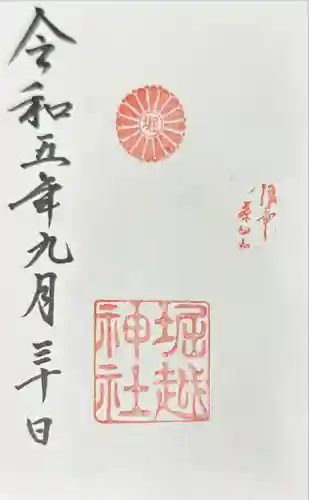 堀
堀越
神社
令和五年九月三十日